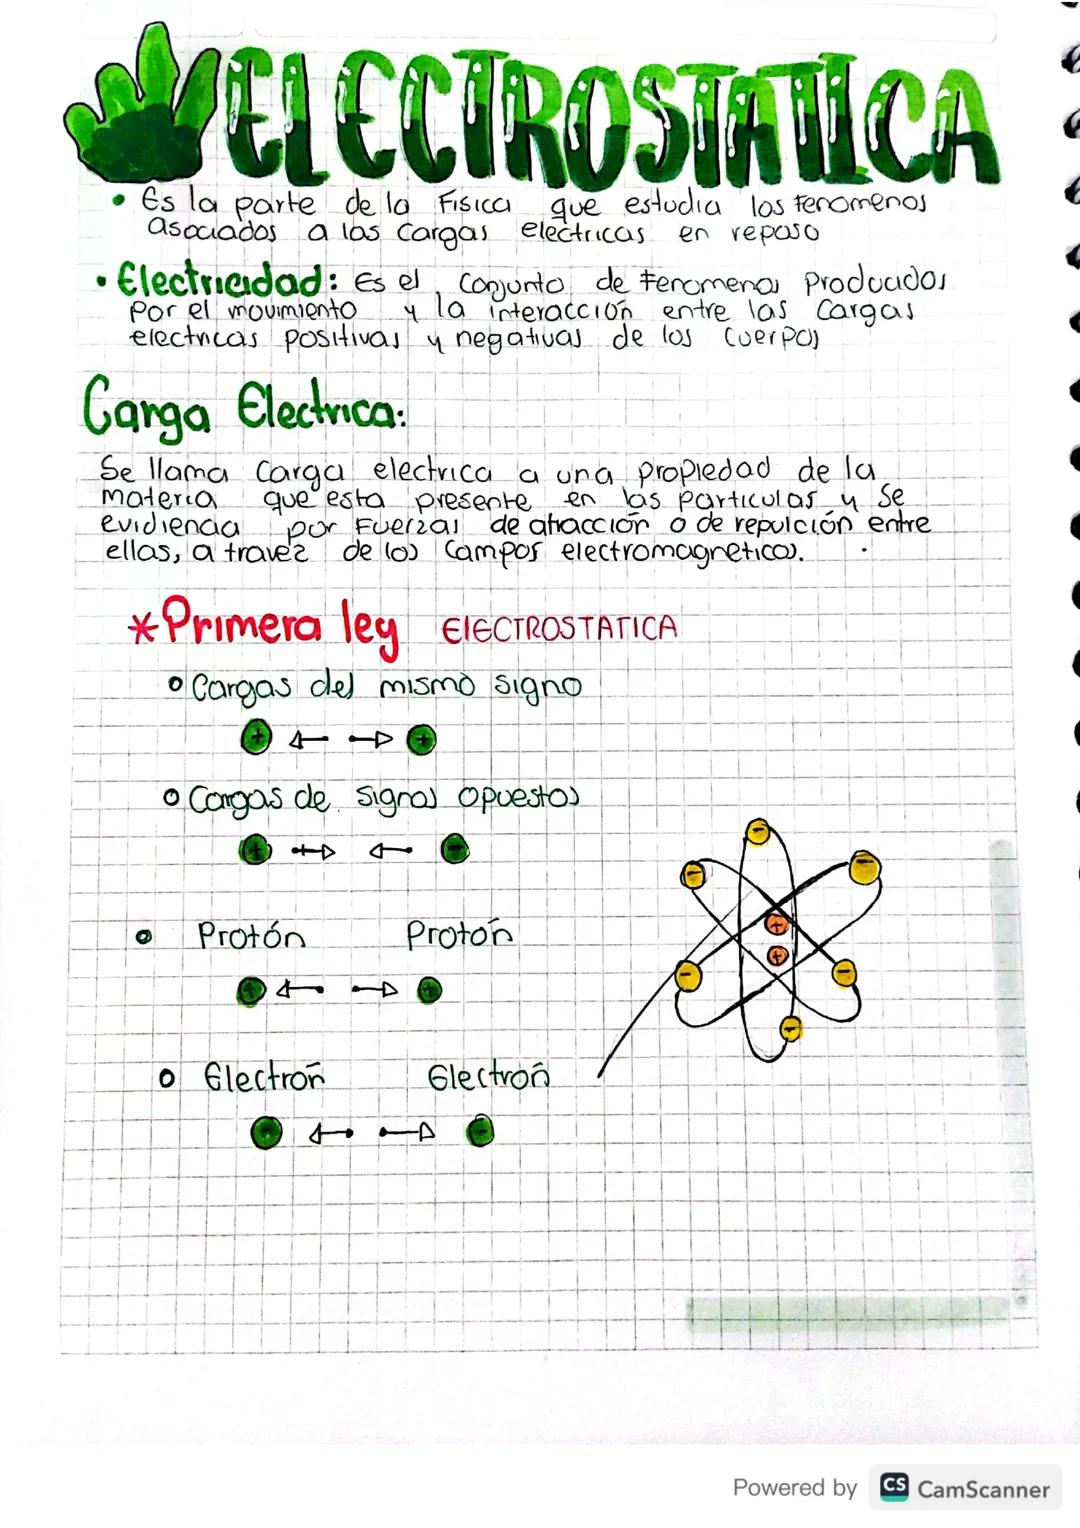 ELECTROSTATICA
• Es la parte de la Física que estudia los fenomenos
asociados a las Cargas electricas en reposo
• Electricidad: Es el Conjunto de fenomenos Producidos
Por el movimiento y la interacción entre las Cargas
electricas positivas y negativas de los Cuerpos
Carga Electrica:
Se llama Carga electrica a una propiedad de la
materia que esta presente en las particulas y Se
evidiencia por Fuerzas de atracción o de repulción entre
ellas, a travez de los Campos electromagneticos.
*Primera ley ElECTROSTATICA
Cargas del mismo signo
+ +
Cargas de signos opuestos
+ -
Protón Protón
+ +
Electrón Electrón
- -
-
- -
+
+
- -
-
Powered by CS CamScanner